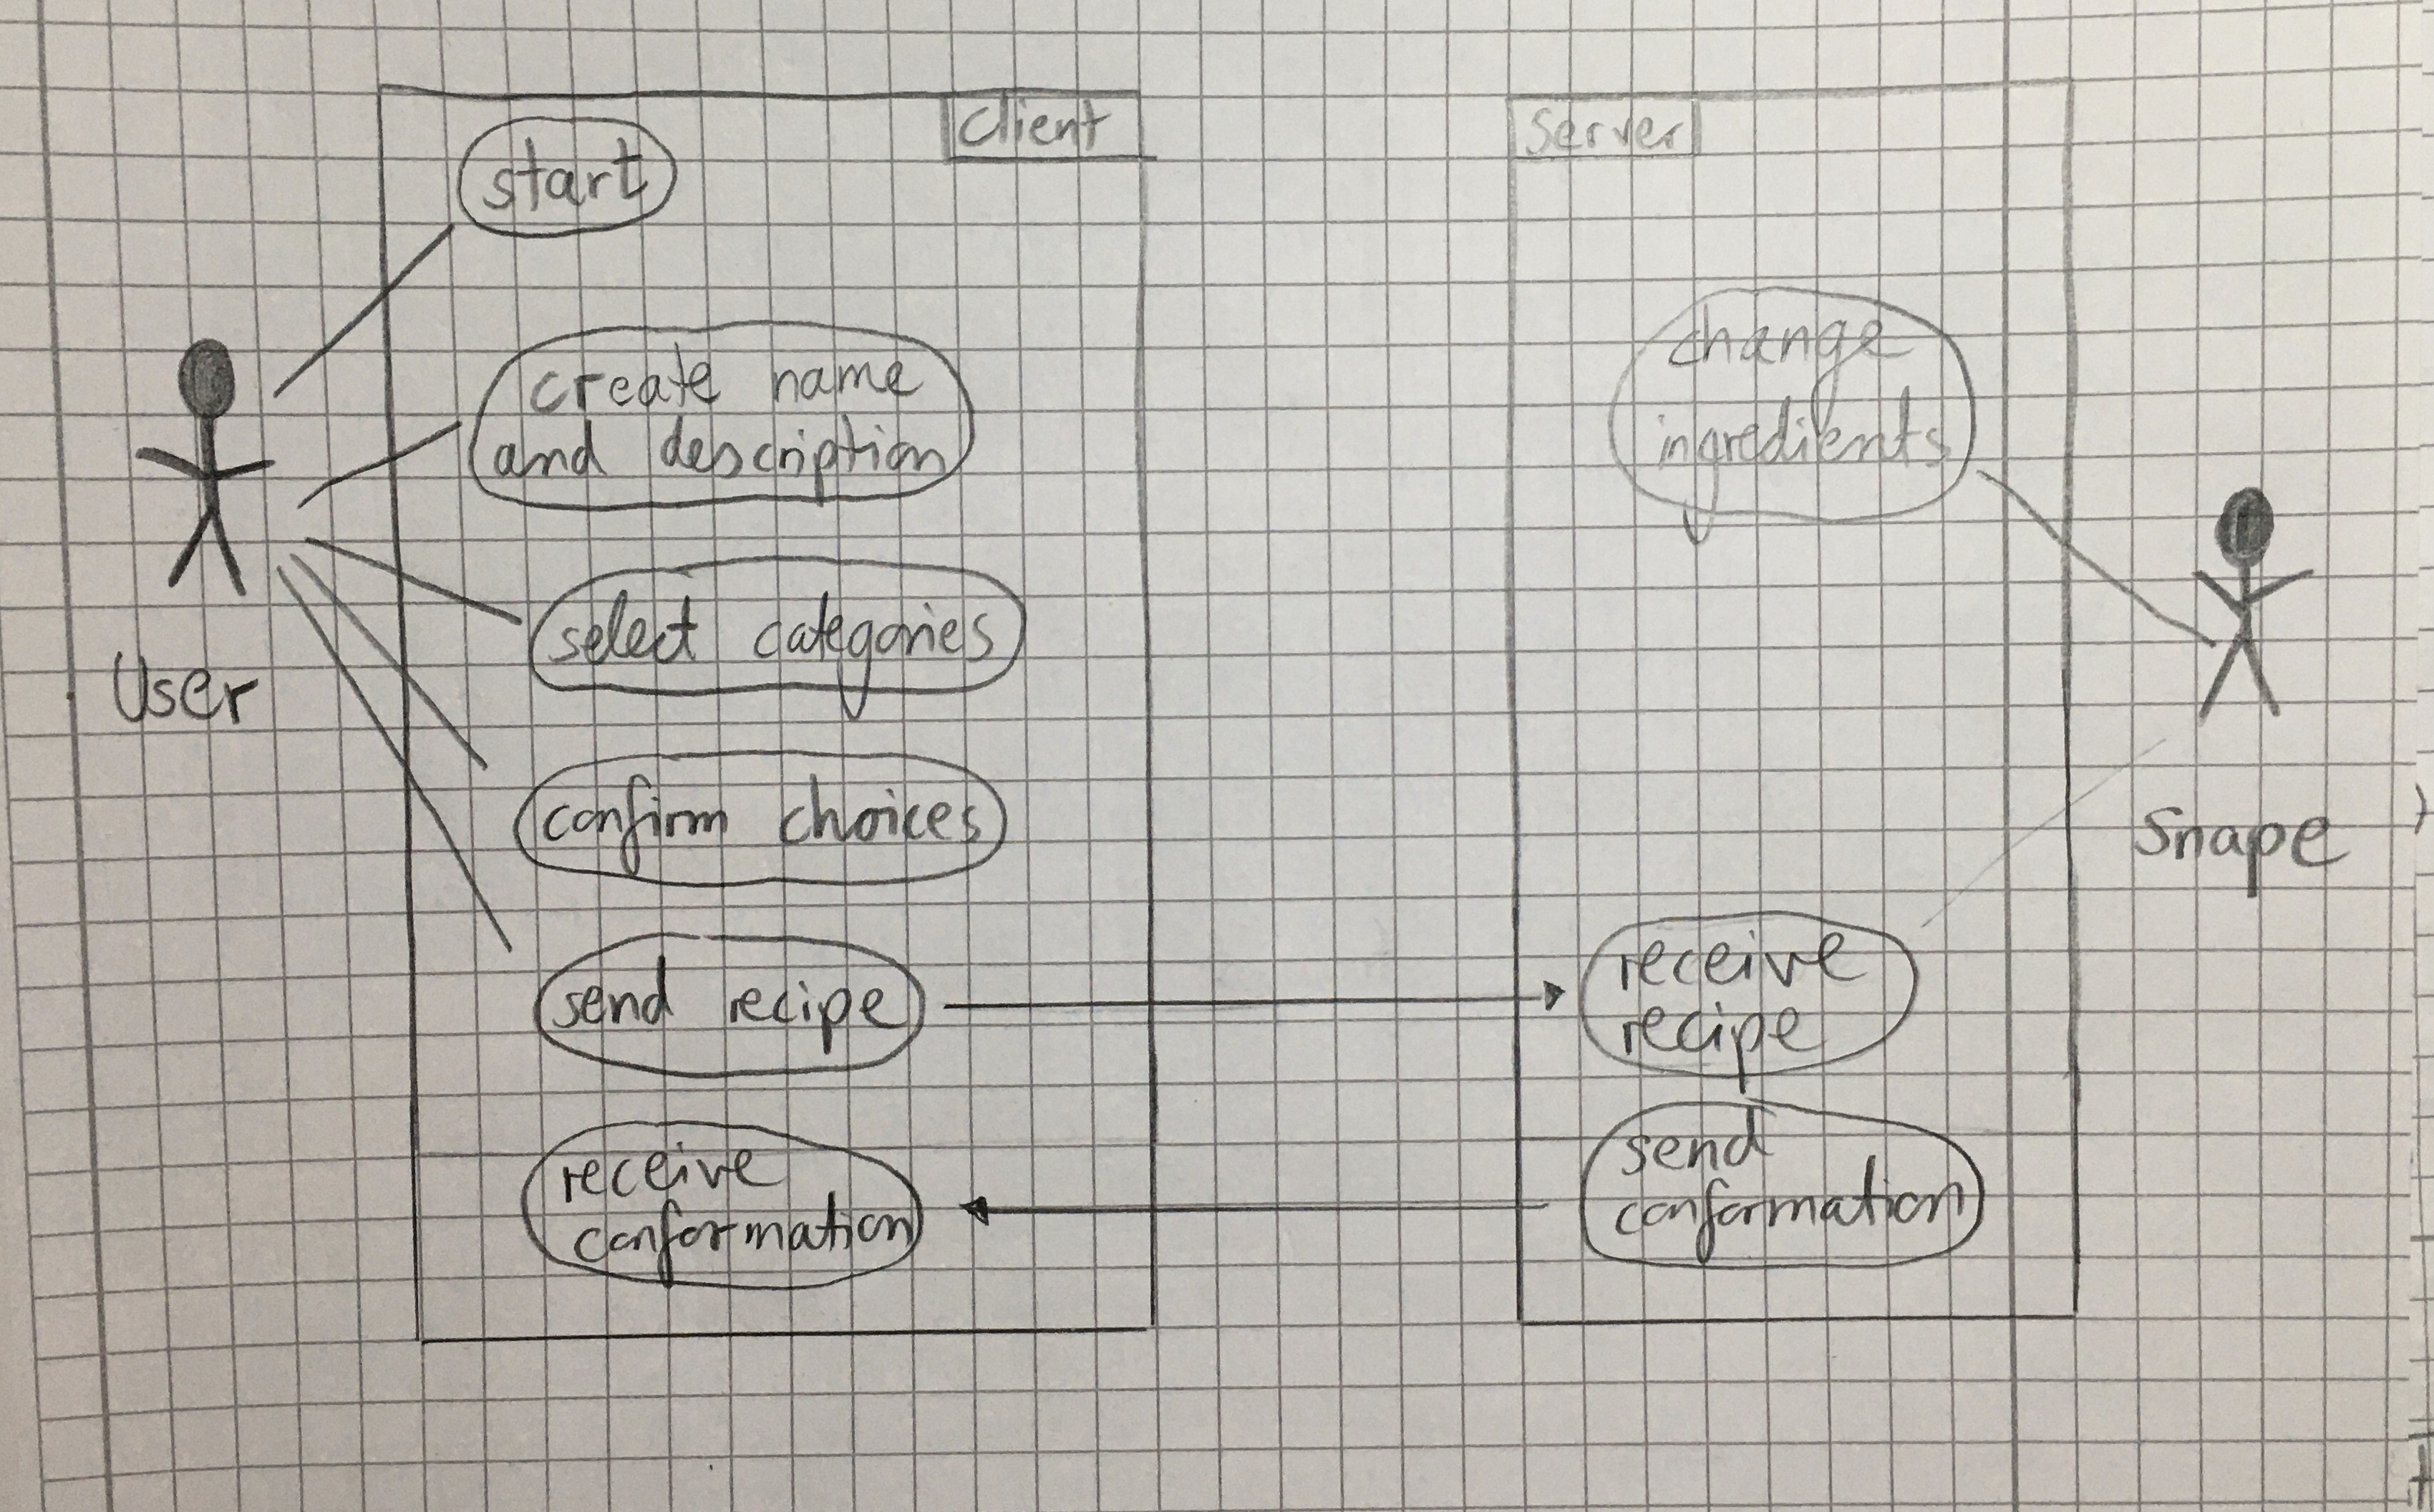 Client
start
create name
and description
select categories
confirm choices
send recipe
receive
conformation
User
Server
change
ingredients
receive
recipe
send
conformation
Snape